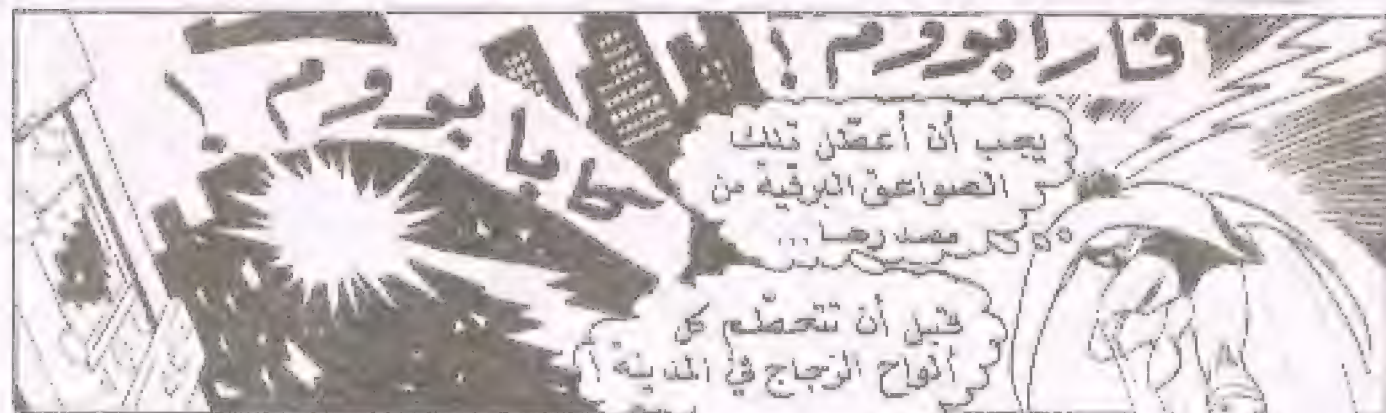 ڤارابووم !
كابابووم !
يجب أن أعطّل تلك
الصواعق البرقية من
مصدرها ...
قبل أن تتحطّم كل
ألواح الزجاج في المدينة !